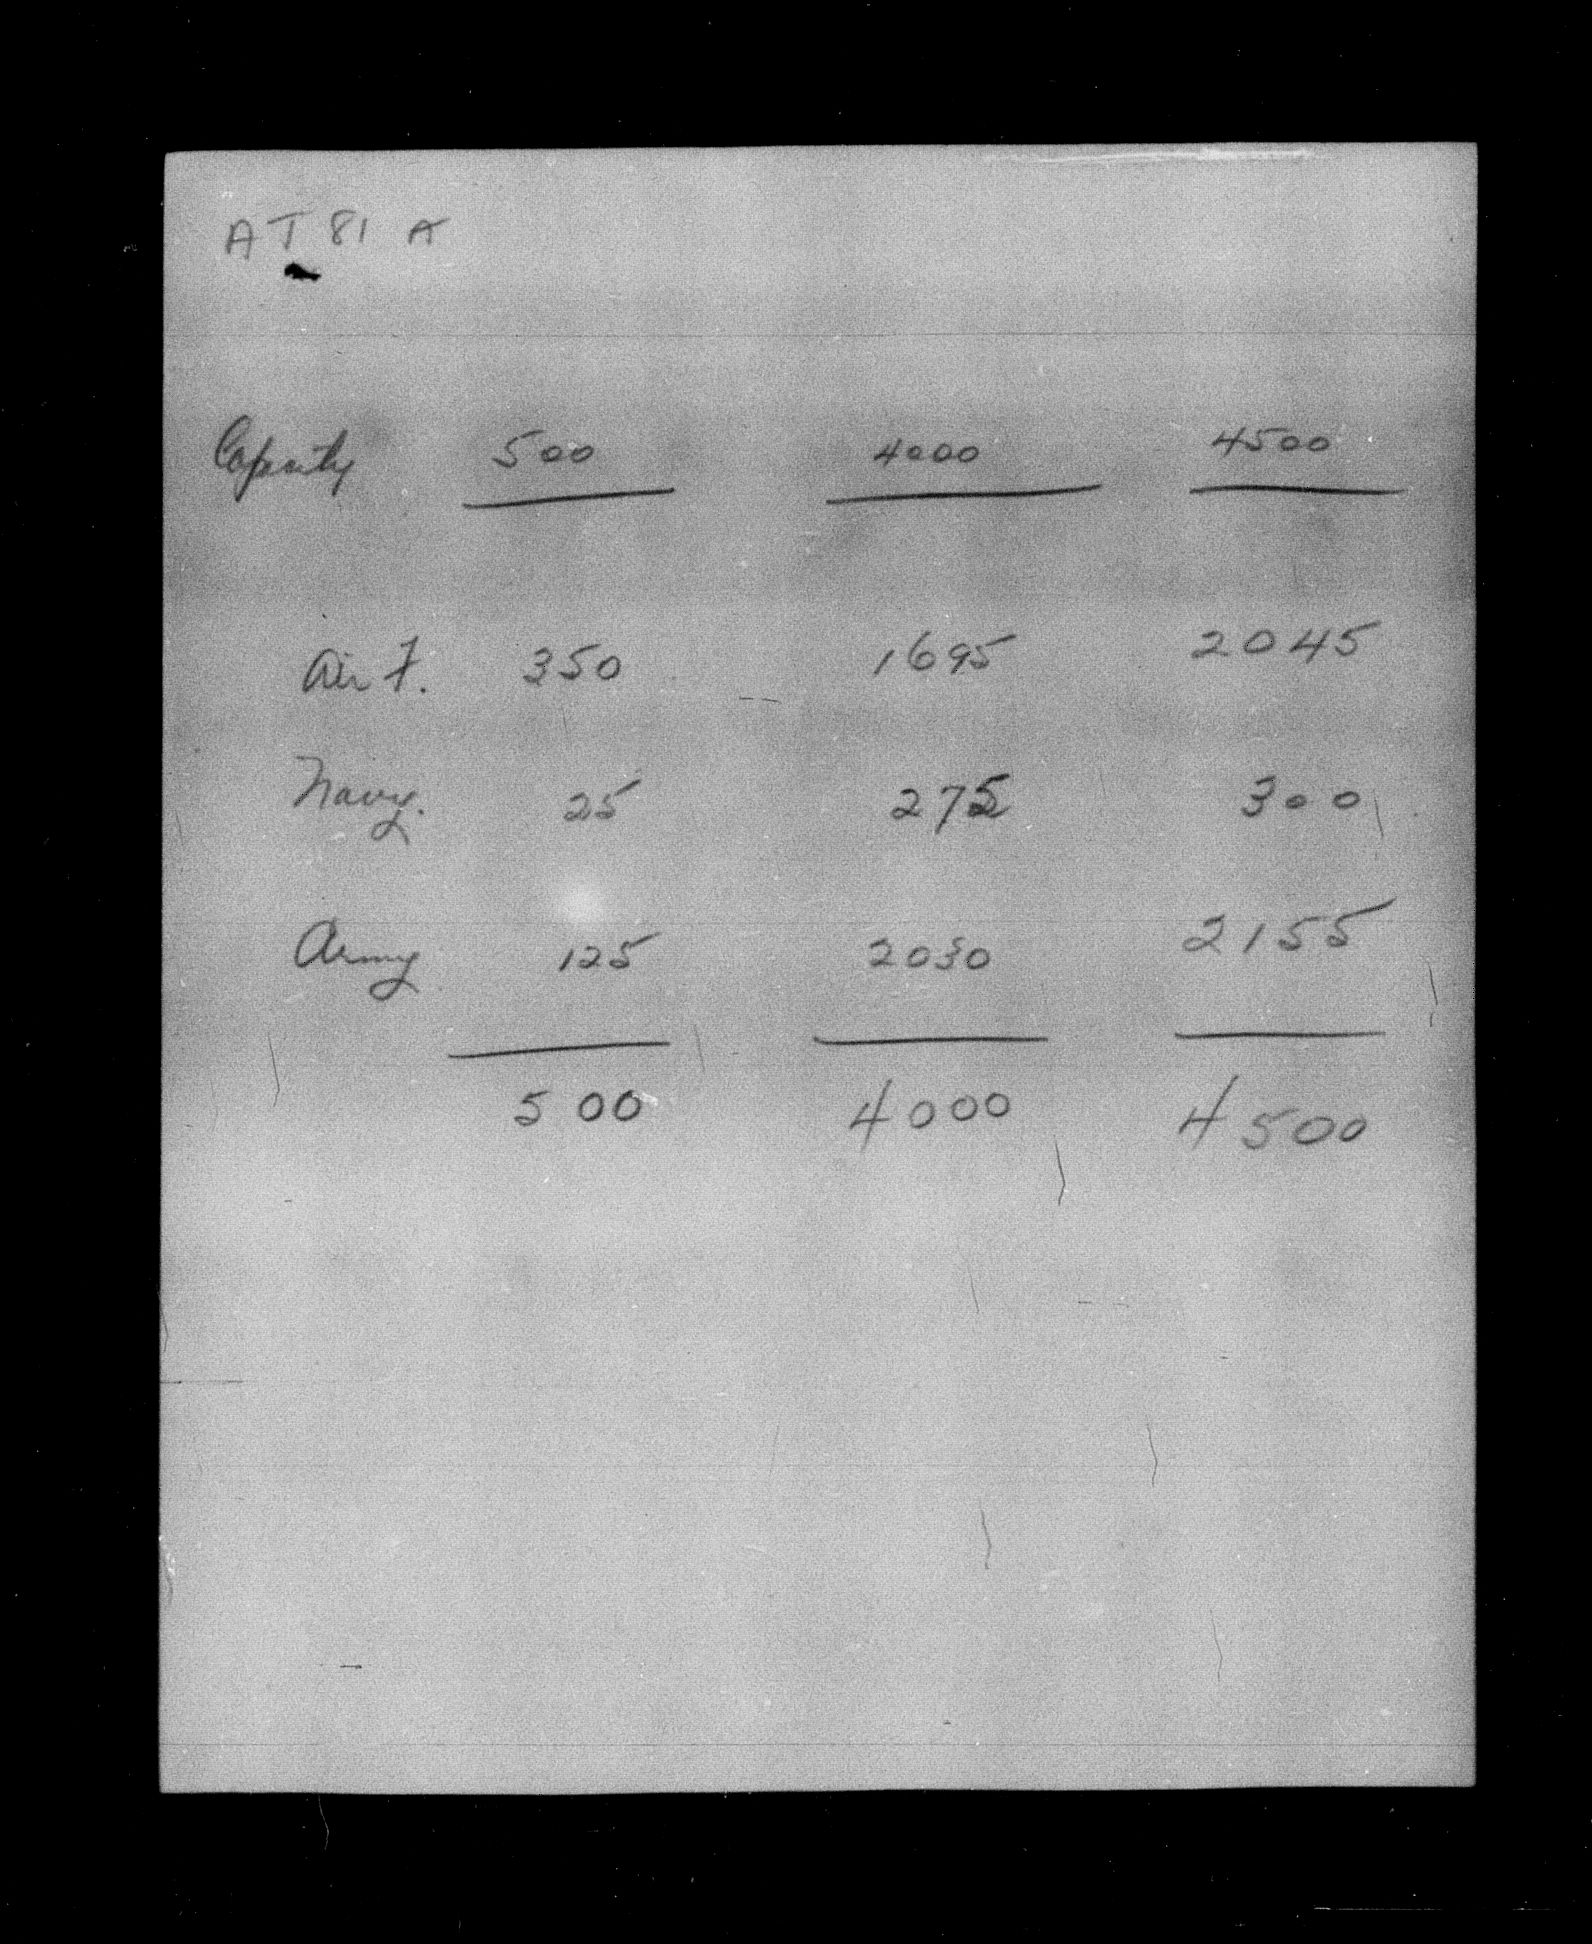 AT 81 A
Capacity 500 4000 4500
Air F. 350 1695 2045
Navy. 25 275 300
Army 125 2030 2155
500 4000 4500